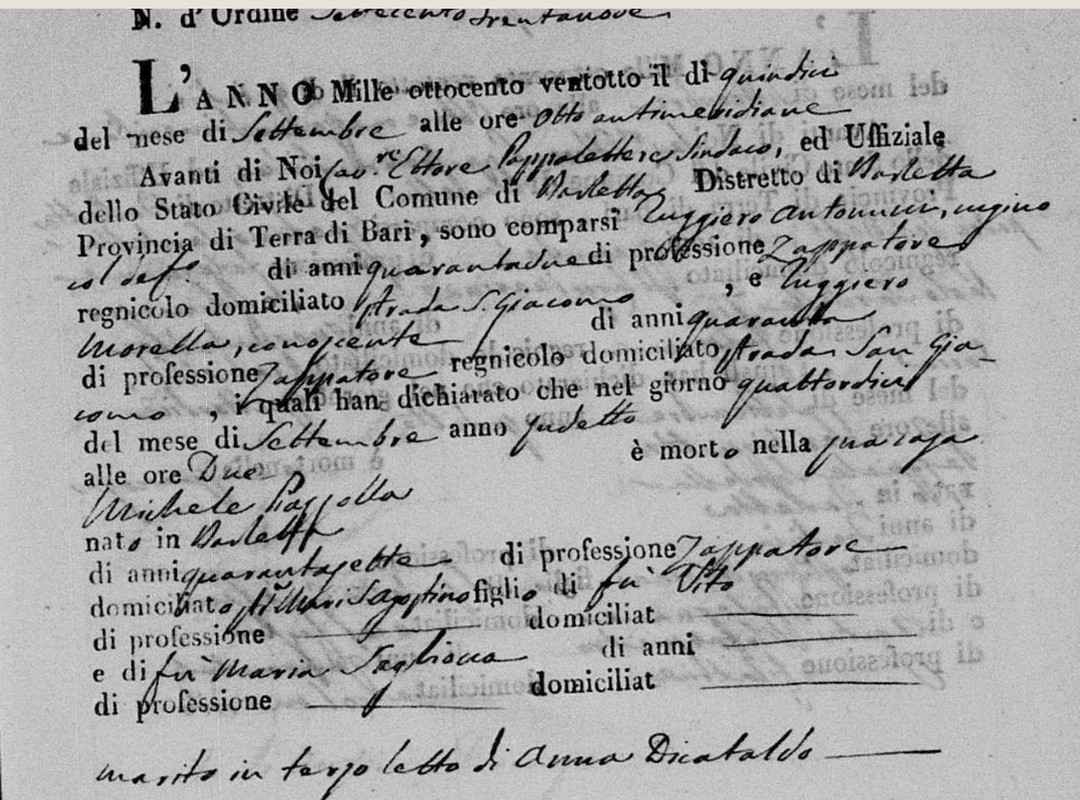 N. d'Ordine Settecento trentanove
L'ANNO Mille ottocento ventotto il dì quindici
del mese di Settembre alle ore Otto antimeridiane
Avanti di Noi Cav.re Ettore Pappalettere Sindaco, ed Uffiziale
dello Stato Civile del Comune di Barletta Distretto di Barletta
Provincia di Terra di Bari, sono comparsi Ruggiero Antonucci, cugino
col def.o di anni quarantadue di professione Zappatore
regnicolo domiciliato strada S. Giacomo , e Ruggiero
Morella, conoscente di anni quaranta
di professione Zappatore regnicolo domiciliato strada San Gia-
como , i quali han dichiarato che nel giorno quattordici
del mese di Settembre anno sudetto
alle ore Due è morto nella sua casa
Michele Piazzolla
nato in Barletta
di anni quarantasette di professione Zappatore
domiciliato Sagostino figlio di fù Vito
di professione domiciliat
e di fù Maria di anni
di professione domiciliat
marito in terzo letto di Anna Dicataldo